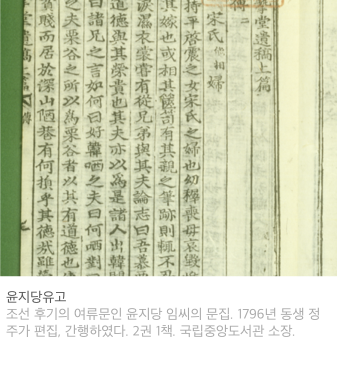 堂遺稿上篇
傳 二
宋氏能相婦
持平啓震之女宋氏之婦也幼穉喪母哀毀
其嫁也或相其篋笥有其親之筆跡則輒不
淚濕衣裳嘗有從兄弟與其夫論志曰吾慕
道德與其榮貴也其夫亦以爲是諸人出韓
曰諸兄之言如何曰好韓哂之夫曰何哂對
之夫栗谷之所以爲栗谷者以其有道德也
貧賤而居於深山陋巷有何損乎其德哉雖
윤지당유고
조선 후기의 여류문인 윤지당 임씨의 문집. 1796년 동생 정
주가 편집, 간행하였다. 2권 1책. 국립중앙도서관 소장.